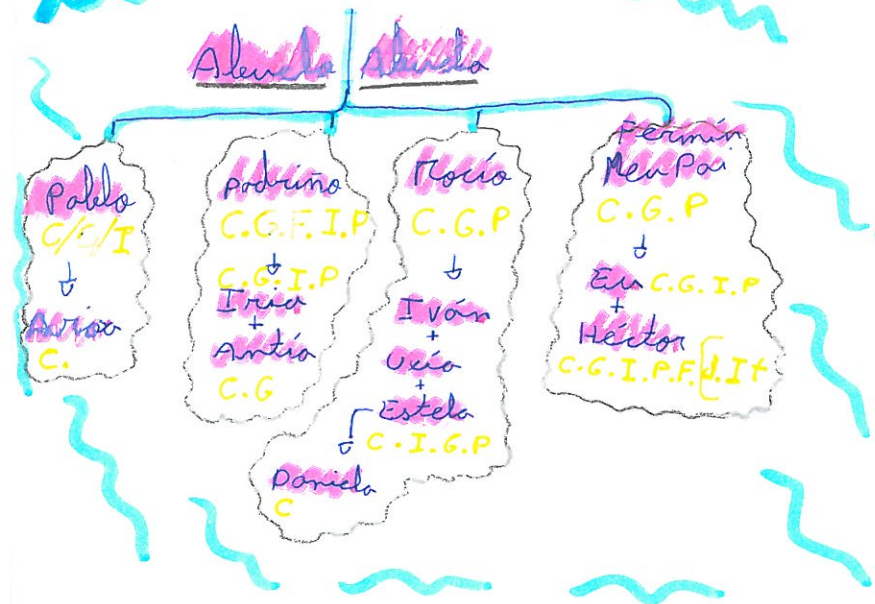 Abuelo Abuela
Pablo
C/G/I
C.
Padriño
C.G.F.I.P
C.G.I.P
Iria
+
Antía
C.G
Rocío
C.G.P
Iván
+
Uxía
+
Estela
C.I.G.P
Daniela
C
Fermín
Meu Pai
C.G.P
Eu C.G.I.P
+
Héctor
C.G.I.P.F.